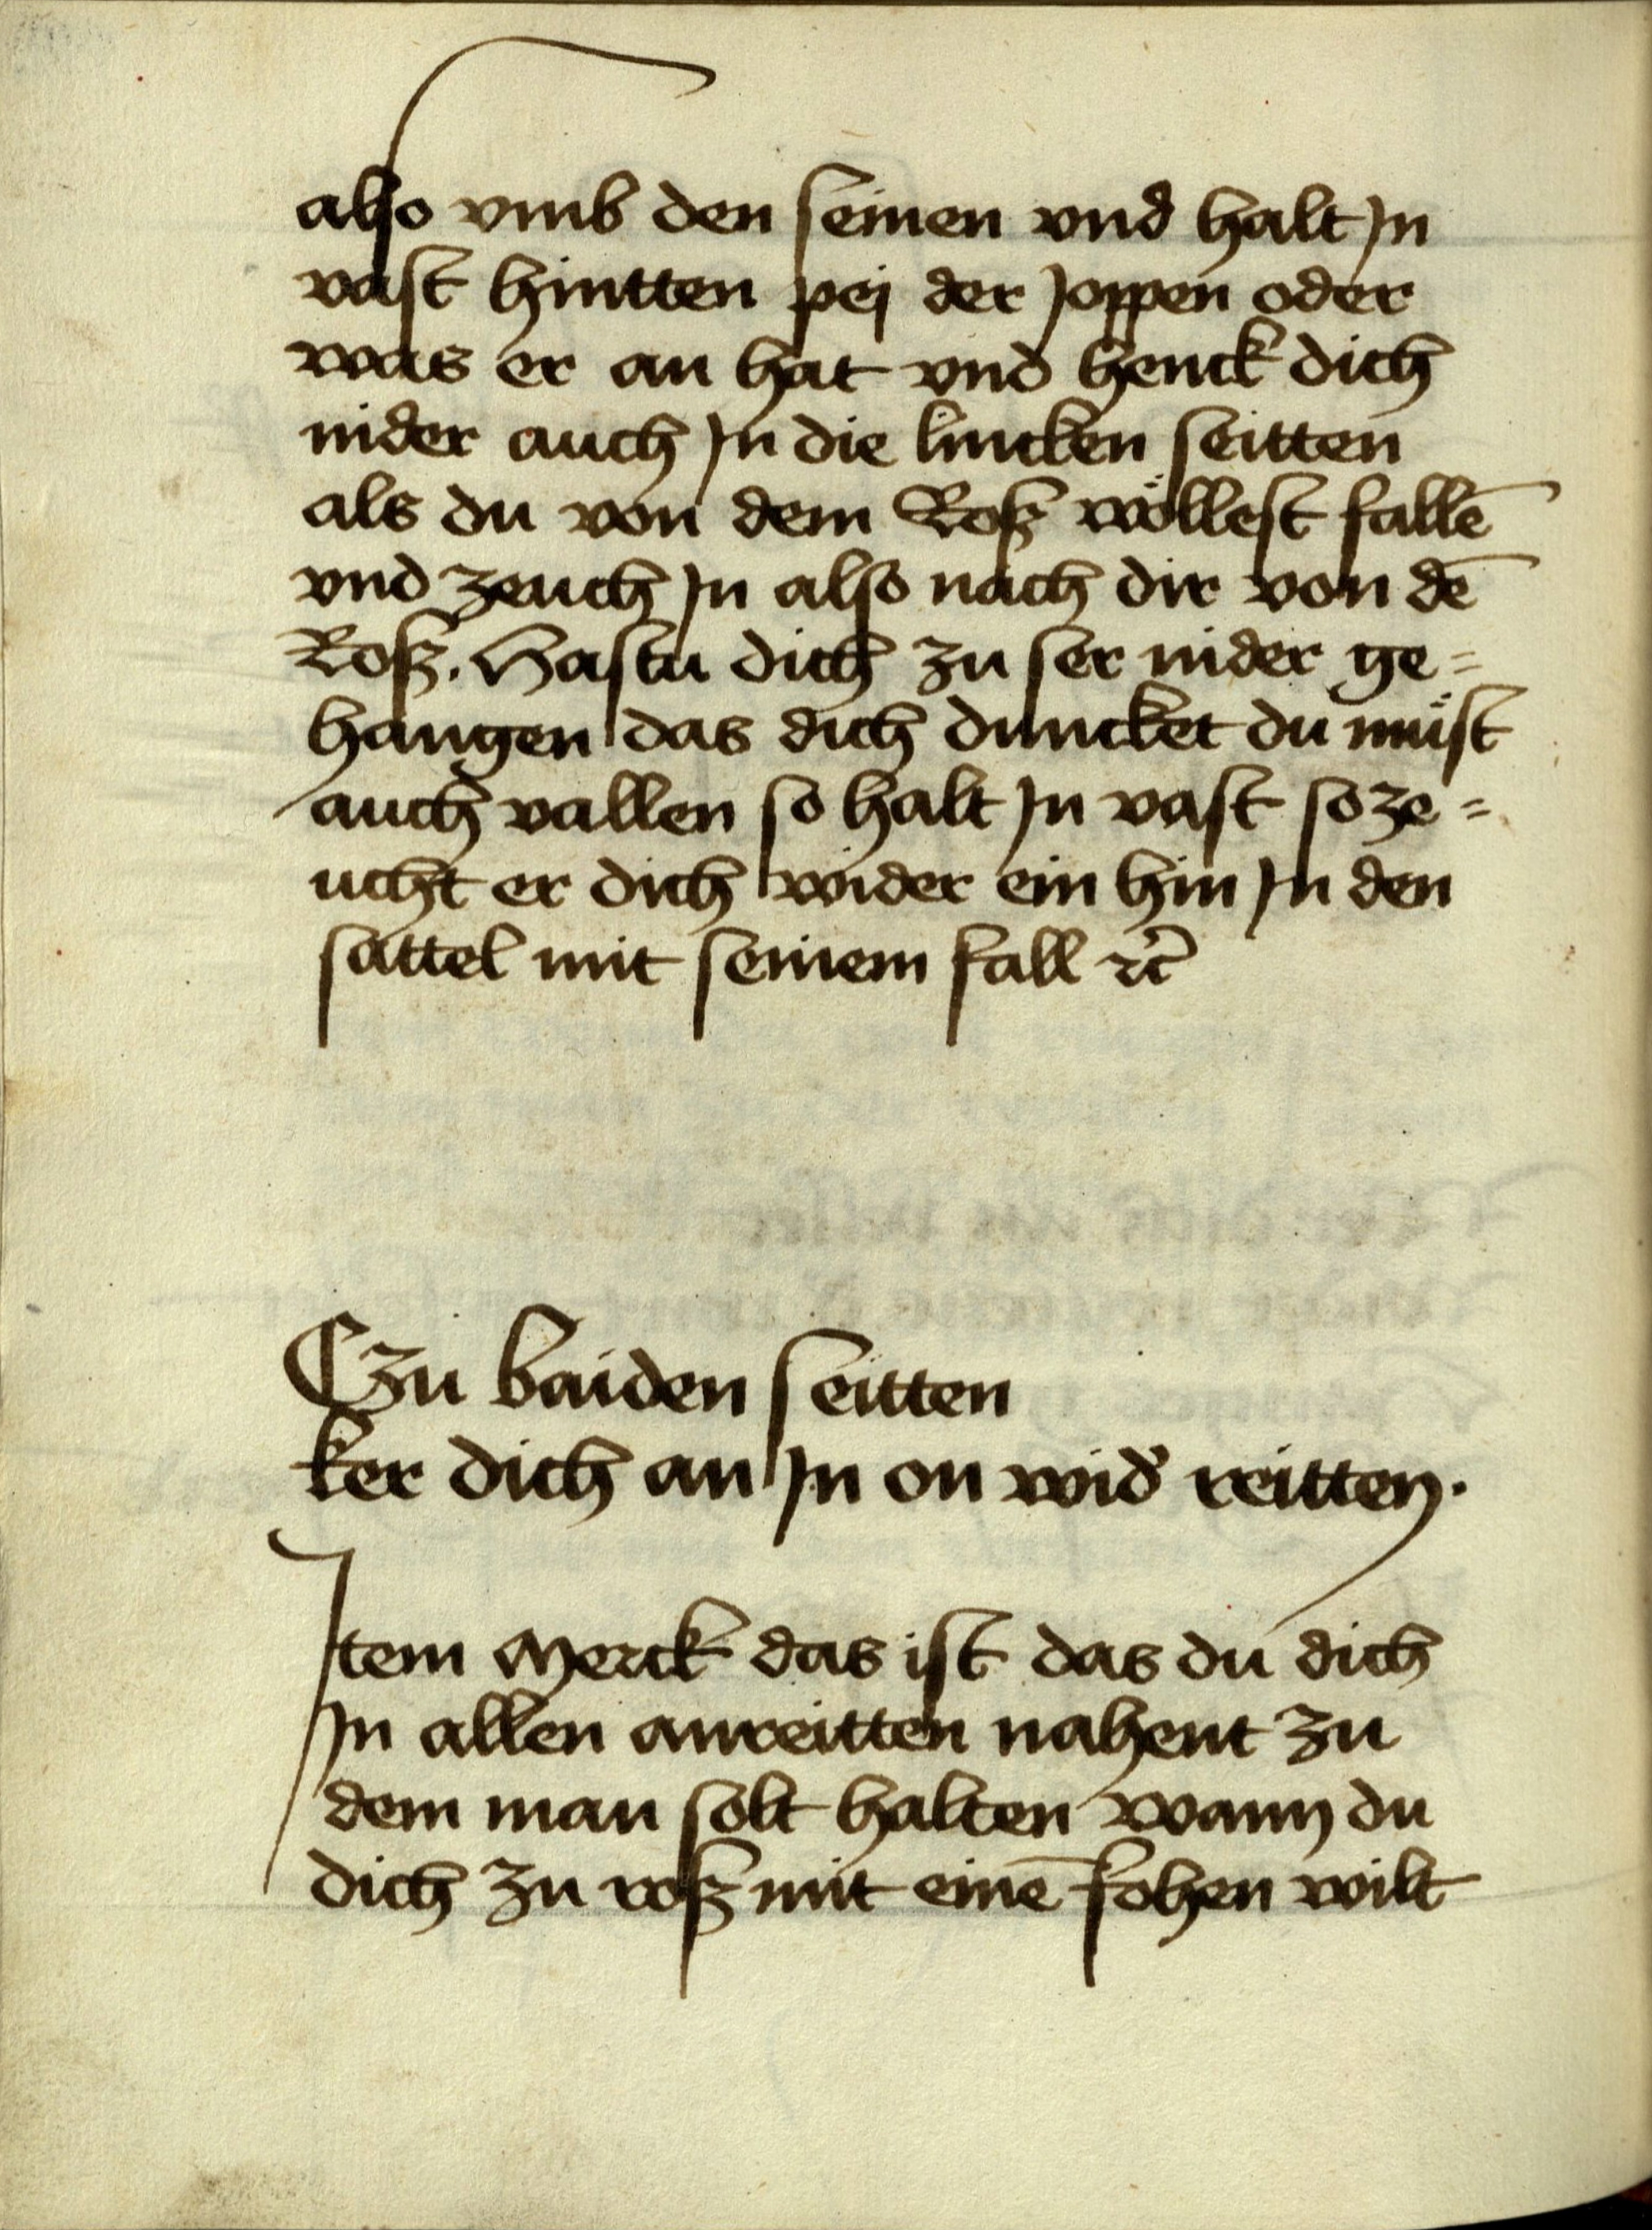 also vmb den seinen vnd halt Jn
vast hintten pej der Joppen oder
was er an hat vnd henck dich
nider auch Jn die lincken seitten
als du von dem Roß wöllest fallē
vnd zeuch Jn also nach dir von dē
Roß. Hastu dich zu ser nider ge=
hangen das dich duncket du müst
auch vallen so halt Jn vast so ze=
ucht er dich wider ein hin Jn den
sattel mit seinem fall ꝛc̄
Czu baiden seitten
ker dich an Jn on wid' reitten.
Jtem Merck das ist das du dich
Jn allen anreitten nahent zu
dem man solt halten wann du
dich zu roß mit einē fohen wilt